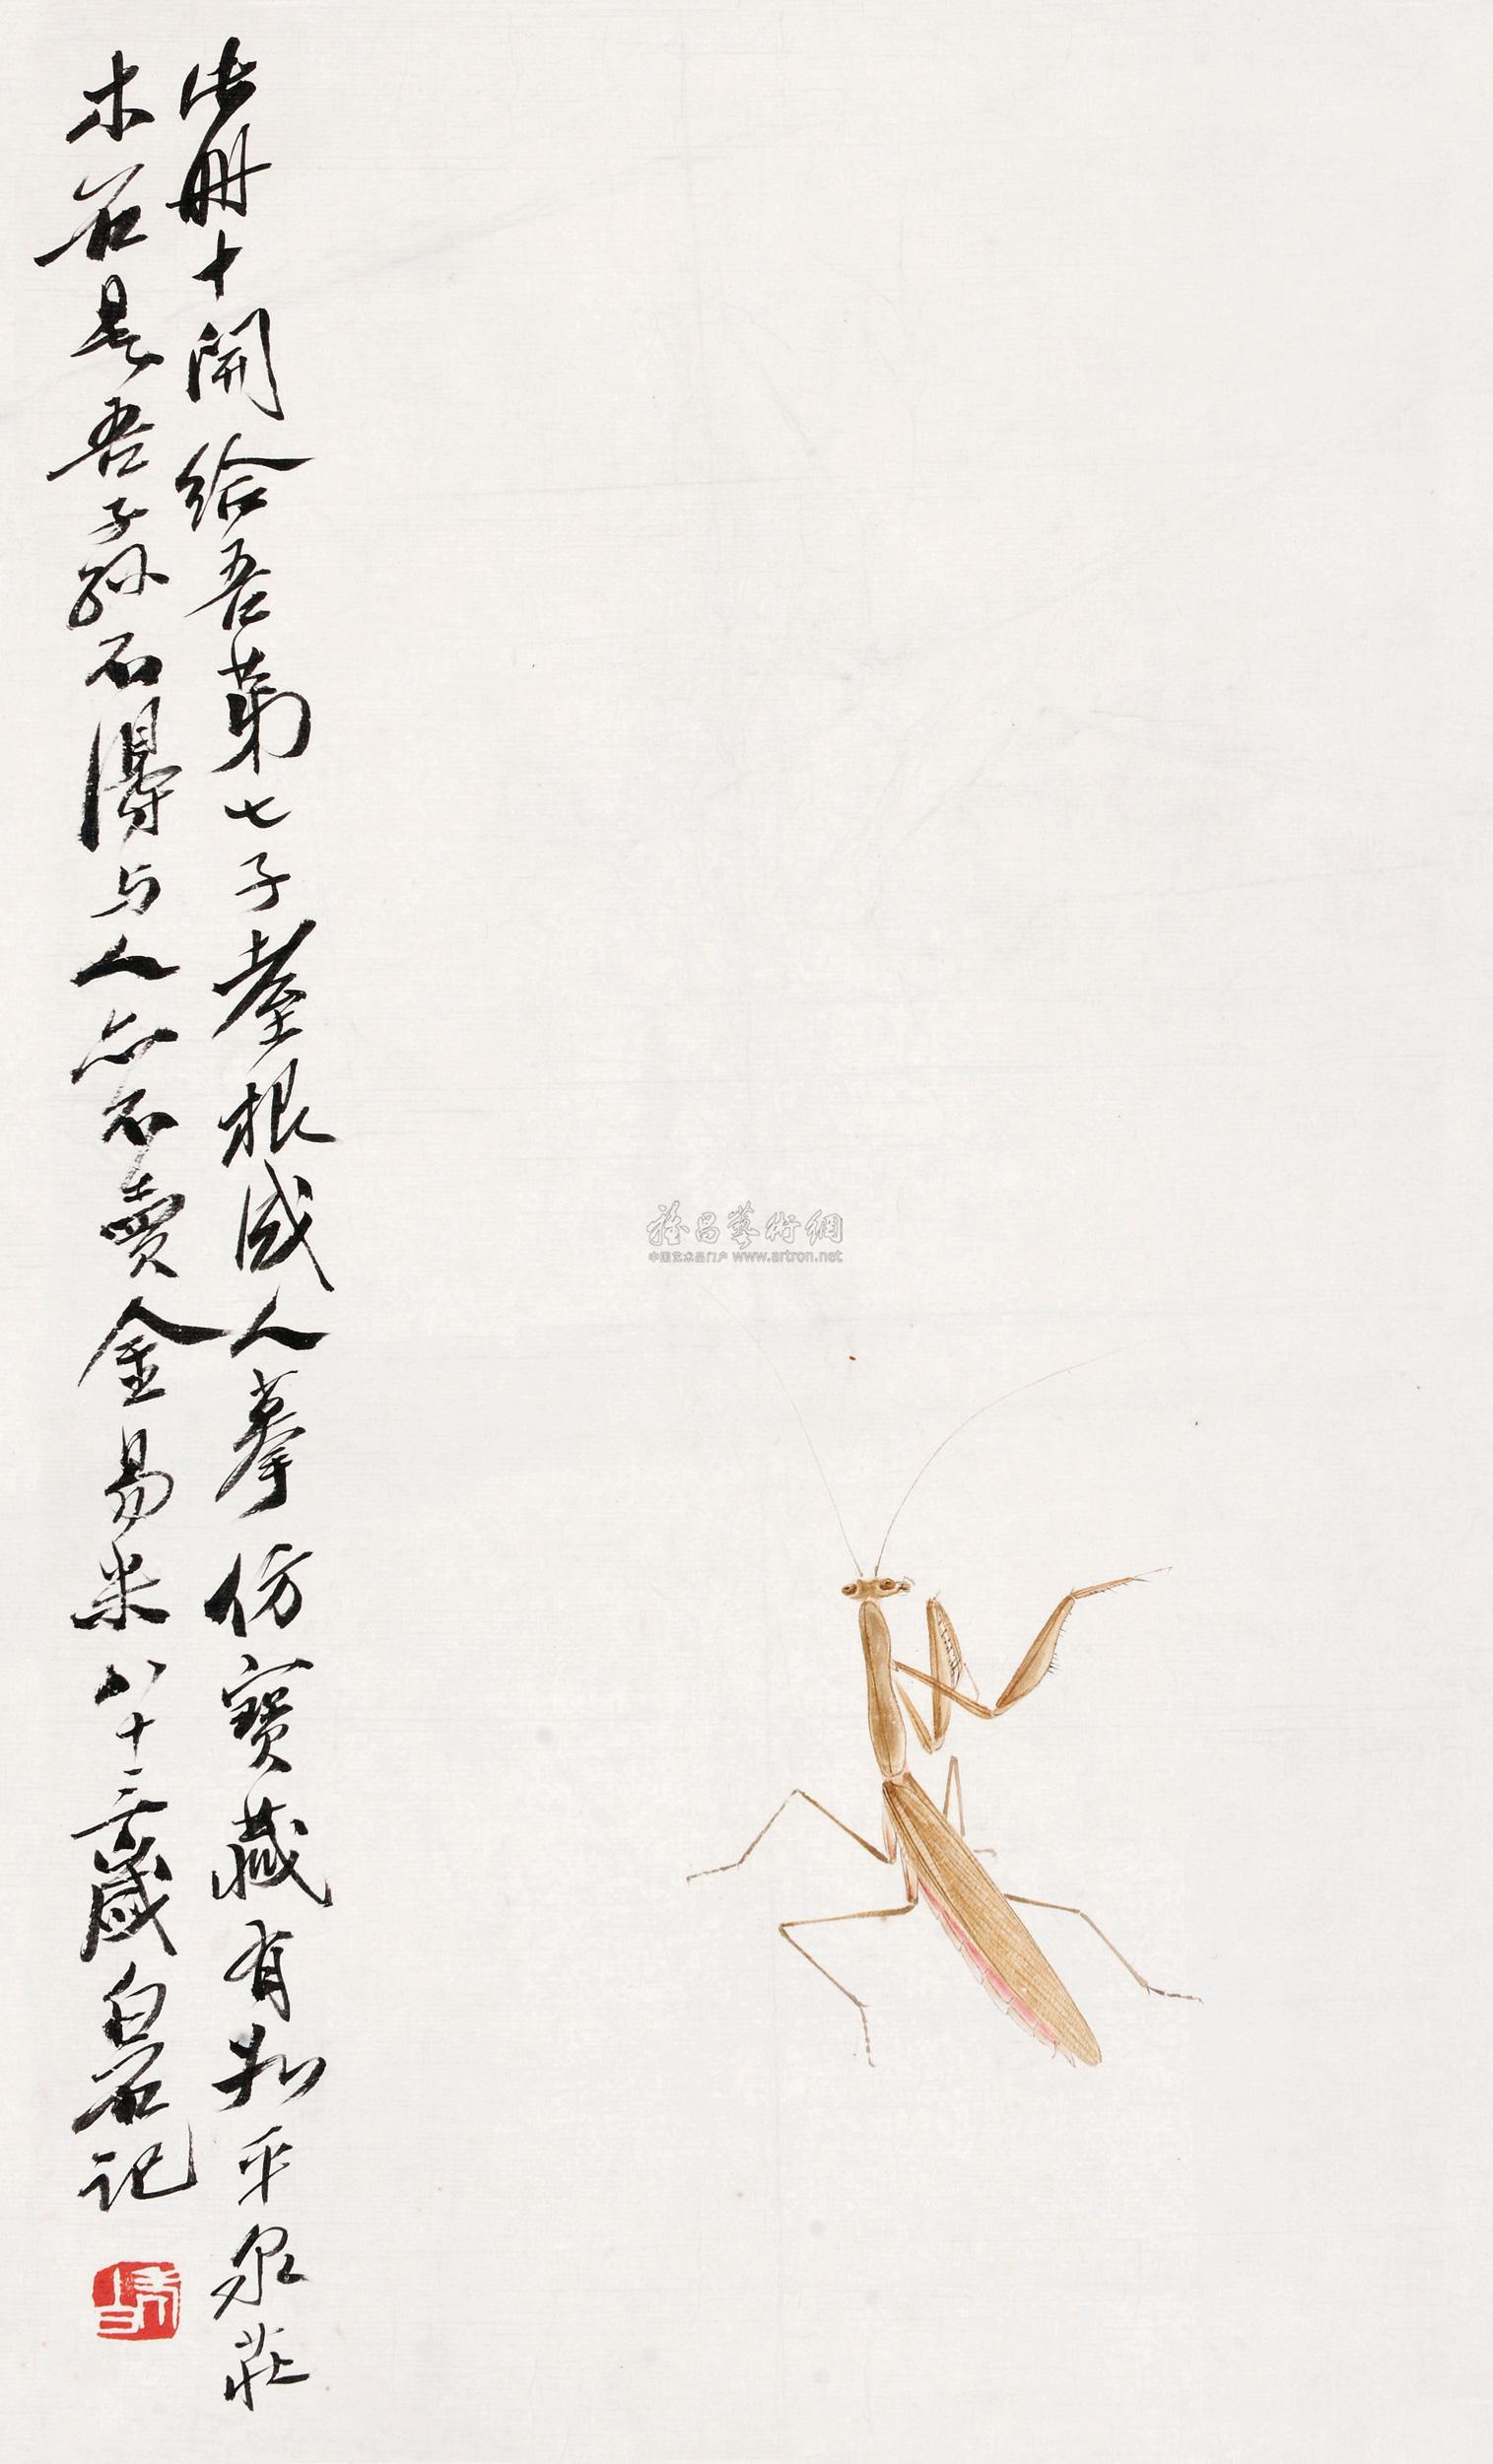 此冊十開給吾第七子耋根成人摹仿寶藏有如平泉莊
木石是吾子孫不得与人亦不賣金易米八十三歲白石記
雅昌藝術網
中国艺术品门户 www.artron.net